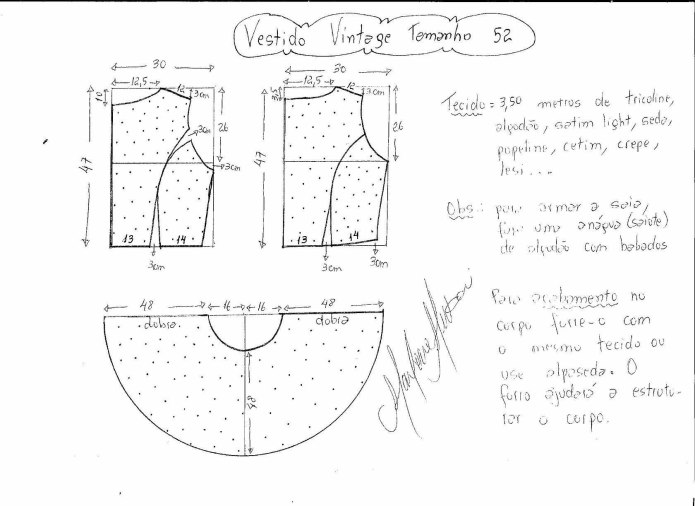 Vestido Vintage Tamanho 52
30
12,5
12
3cm
10
3cm
26
47
3cm
13
14
3cm
30
12,5
12
3cm
26
47
13
14
3cm
3cm
Tecido = 3,50 metros de tricoline,
algodão, satim light, seda,
popeline, cetim, crepe,
lesi...
Obs.: para armar a saia,
uma anágua (saiote)
de algodão com babados
48
16
16
48
dobra
dobra
48
Para acabamento no
corpo forre-o com
o mesmo tecido ou
use alpaseda. O
forro ajudará a estrutu-
rar o corpo.